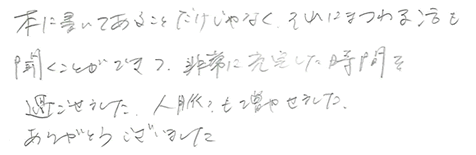 本に書いてあることだけじゃなく、それにまつわる話も
聞くことができて、非常に充実した時間を
過ごせました。人脈も増やせました。
ありがとうございました